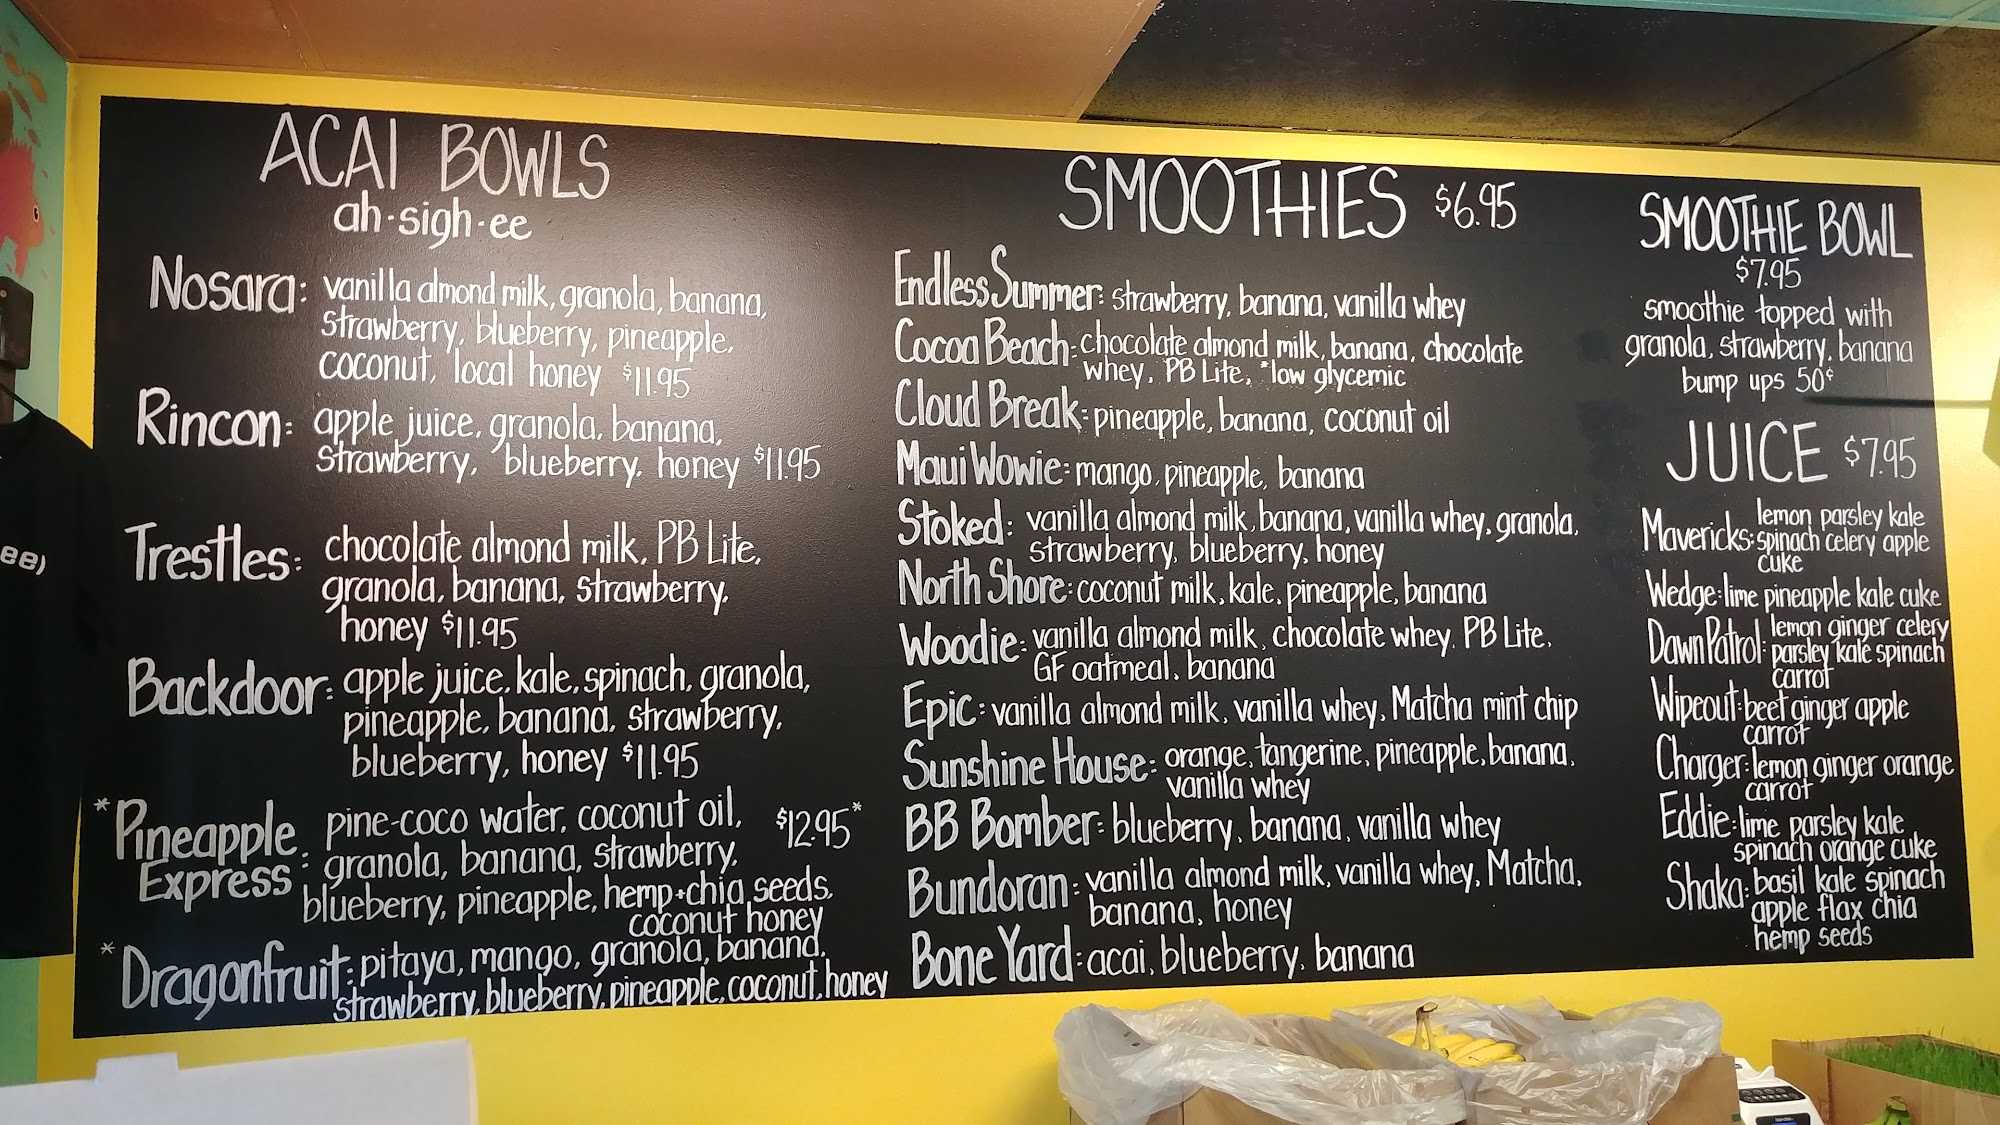 ee)
ACAI BOWLS
ah·sigh·ee
Nosara: vanilla almond milk, granola, banana,
strawberry, blueberry, pineapple,
coconut, local honey $11.95
Rincon: apple juice, granola, banana,
strawberry, blueberry, honey $11.95
Trestles: chocolate almond milk, PB Lite,
granola, banana, strawberry,
honey $11.95
Backdoor: apple juice, kale, spinach, granola,
pineapple, banana, strawberry,
blueberry, honey $11.95
*Pineapple Express: pine-coco water, coconut oil, $12.95*
granola, banana, strawberry,
blueberry, pineapple, hemp+chia seeds,
coconut honey
*Dragonfruit: pitaya, mango, granola, banana,
strawberry, blueberry, pineapple, coconut, honey
SMOOTHIES $6.95
Endless Summer: strawberry, banana, vanilla whey
Cocoa Beach: chocolate almond milk, banana, chocolate
whey, PB Lite, *low glycemic
Cloud Break: pineapple, banana, coconut oil
Maui Wowie: mango, pineapple, banana
Stoked: vanilla almond milk, banana, vanilla whey, granola,
strawberry, blueberry, honey
North Shore: coconut milk, kale, pineapple, banana
Woodie: vanilla almond milk, chocolate whey, PB Lite,
GF oatmeal, banana
Epic: vanilla almond milk, vanilla whey, Matcha mint chip
Sunshine House: orange, tangerine, pineapple, banana,
vanilla whey
BB Bomber: blueberry, banana, vanilla whey
Bundoran: vanilla almond milk, vanilla whey, Matcha,
banana, honey
Bone Yard: acai, blueberry, banana
SMOOTHIE BOWL
$7.95
smoothie topped with
granola, strawberry, banana
bump ups 50¢
JUICE $7.95
Mavericks: lemon parsley kale
spinach celery apple
cuke
Wedge: lime pineapple kale cuke
Dawn Patrol: lemon ginger celery
parsley kale spinach
carrot
Wipeout: beet ginger apple
carrot
Charger: lemon ginger orange
carrot
Eddie: lime parsley kale
spinach orange cuke
Shaka: basil kale spinach
apple flax chia
hemp seeds